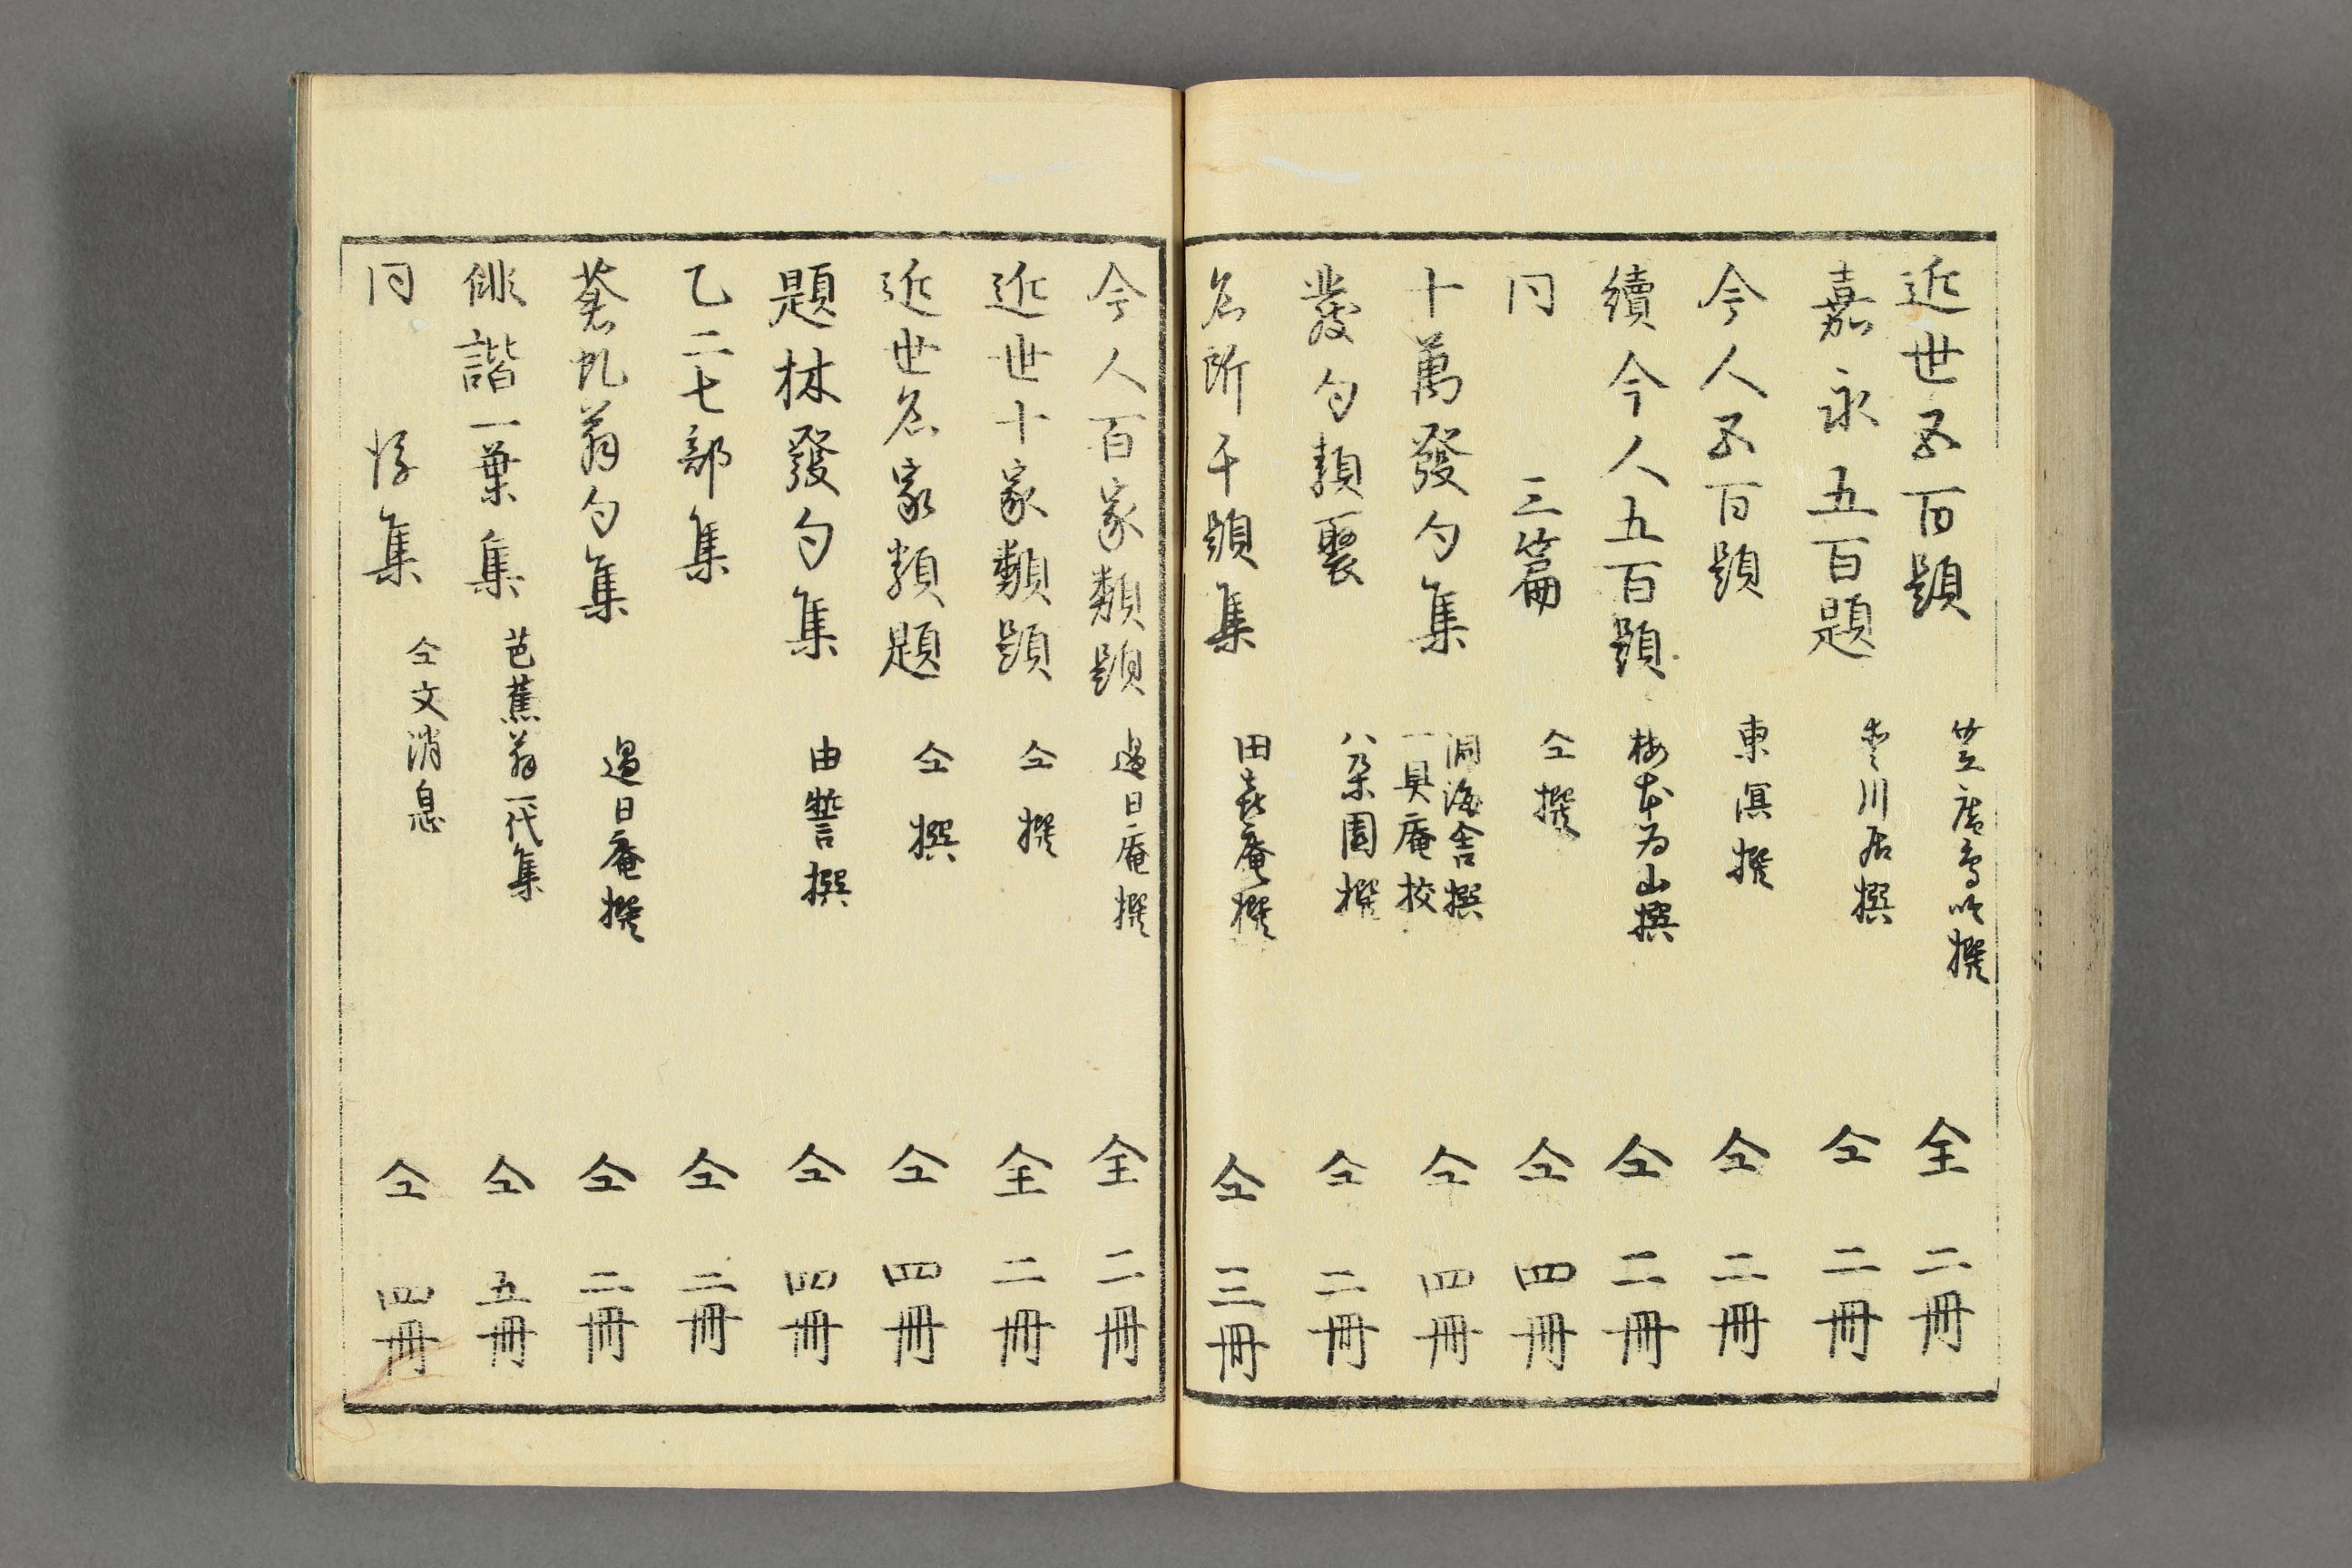 近世五百題 笠庵鳥吹撰 全二冊
嘉永五百題 川居撰 仝二冊
今人五百題 東溟撰 仝二冊
續今人五百題 梅本為山撰 仝二冊
同 三篇 仝撰 仝四冊
十萬發句集 洞海舎撰 一具庵校 仝四冊
發句類聚 八朶園撰 仝二冊
名所千題集 田喜庵撰 仝三冊
今人百家類題 過日庵撰 全二冊
近世十家類題 仝撰 全二冊
近世名家類題 仝撰 仝四冊
題林發句集 由誓撰 仝四冊
乙二七部集 仝二冊
蒼虬翁句集 過日庵撰 仝二冊
俳諧一葉集 芭蕉翁一代集 仝五冊
同 後集 仝文消息 仝四冊